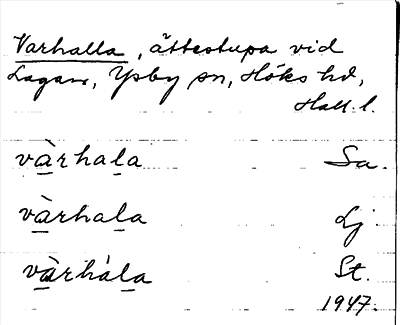 Varhalla, ättestupa vid
Lagan, Ysby sn, Höks hd,
Hall. l.
vàrhala Sa.
vàrhala Lj
vàrhála St.
1947.